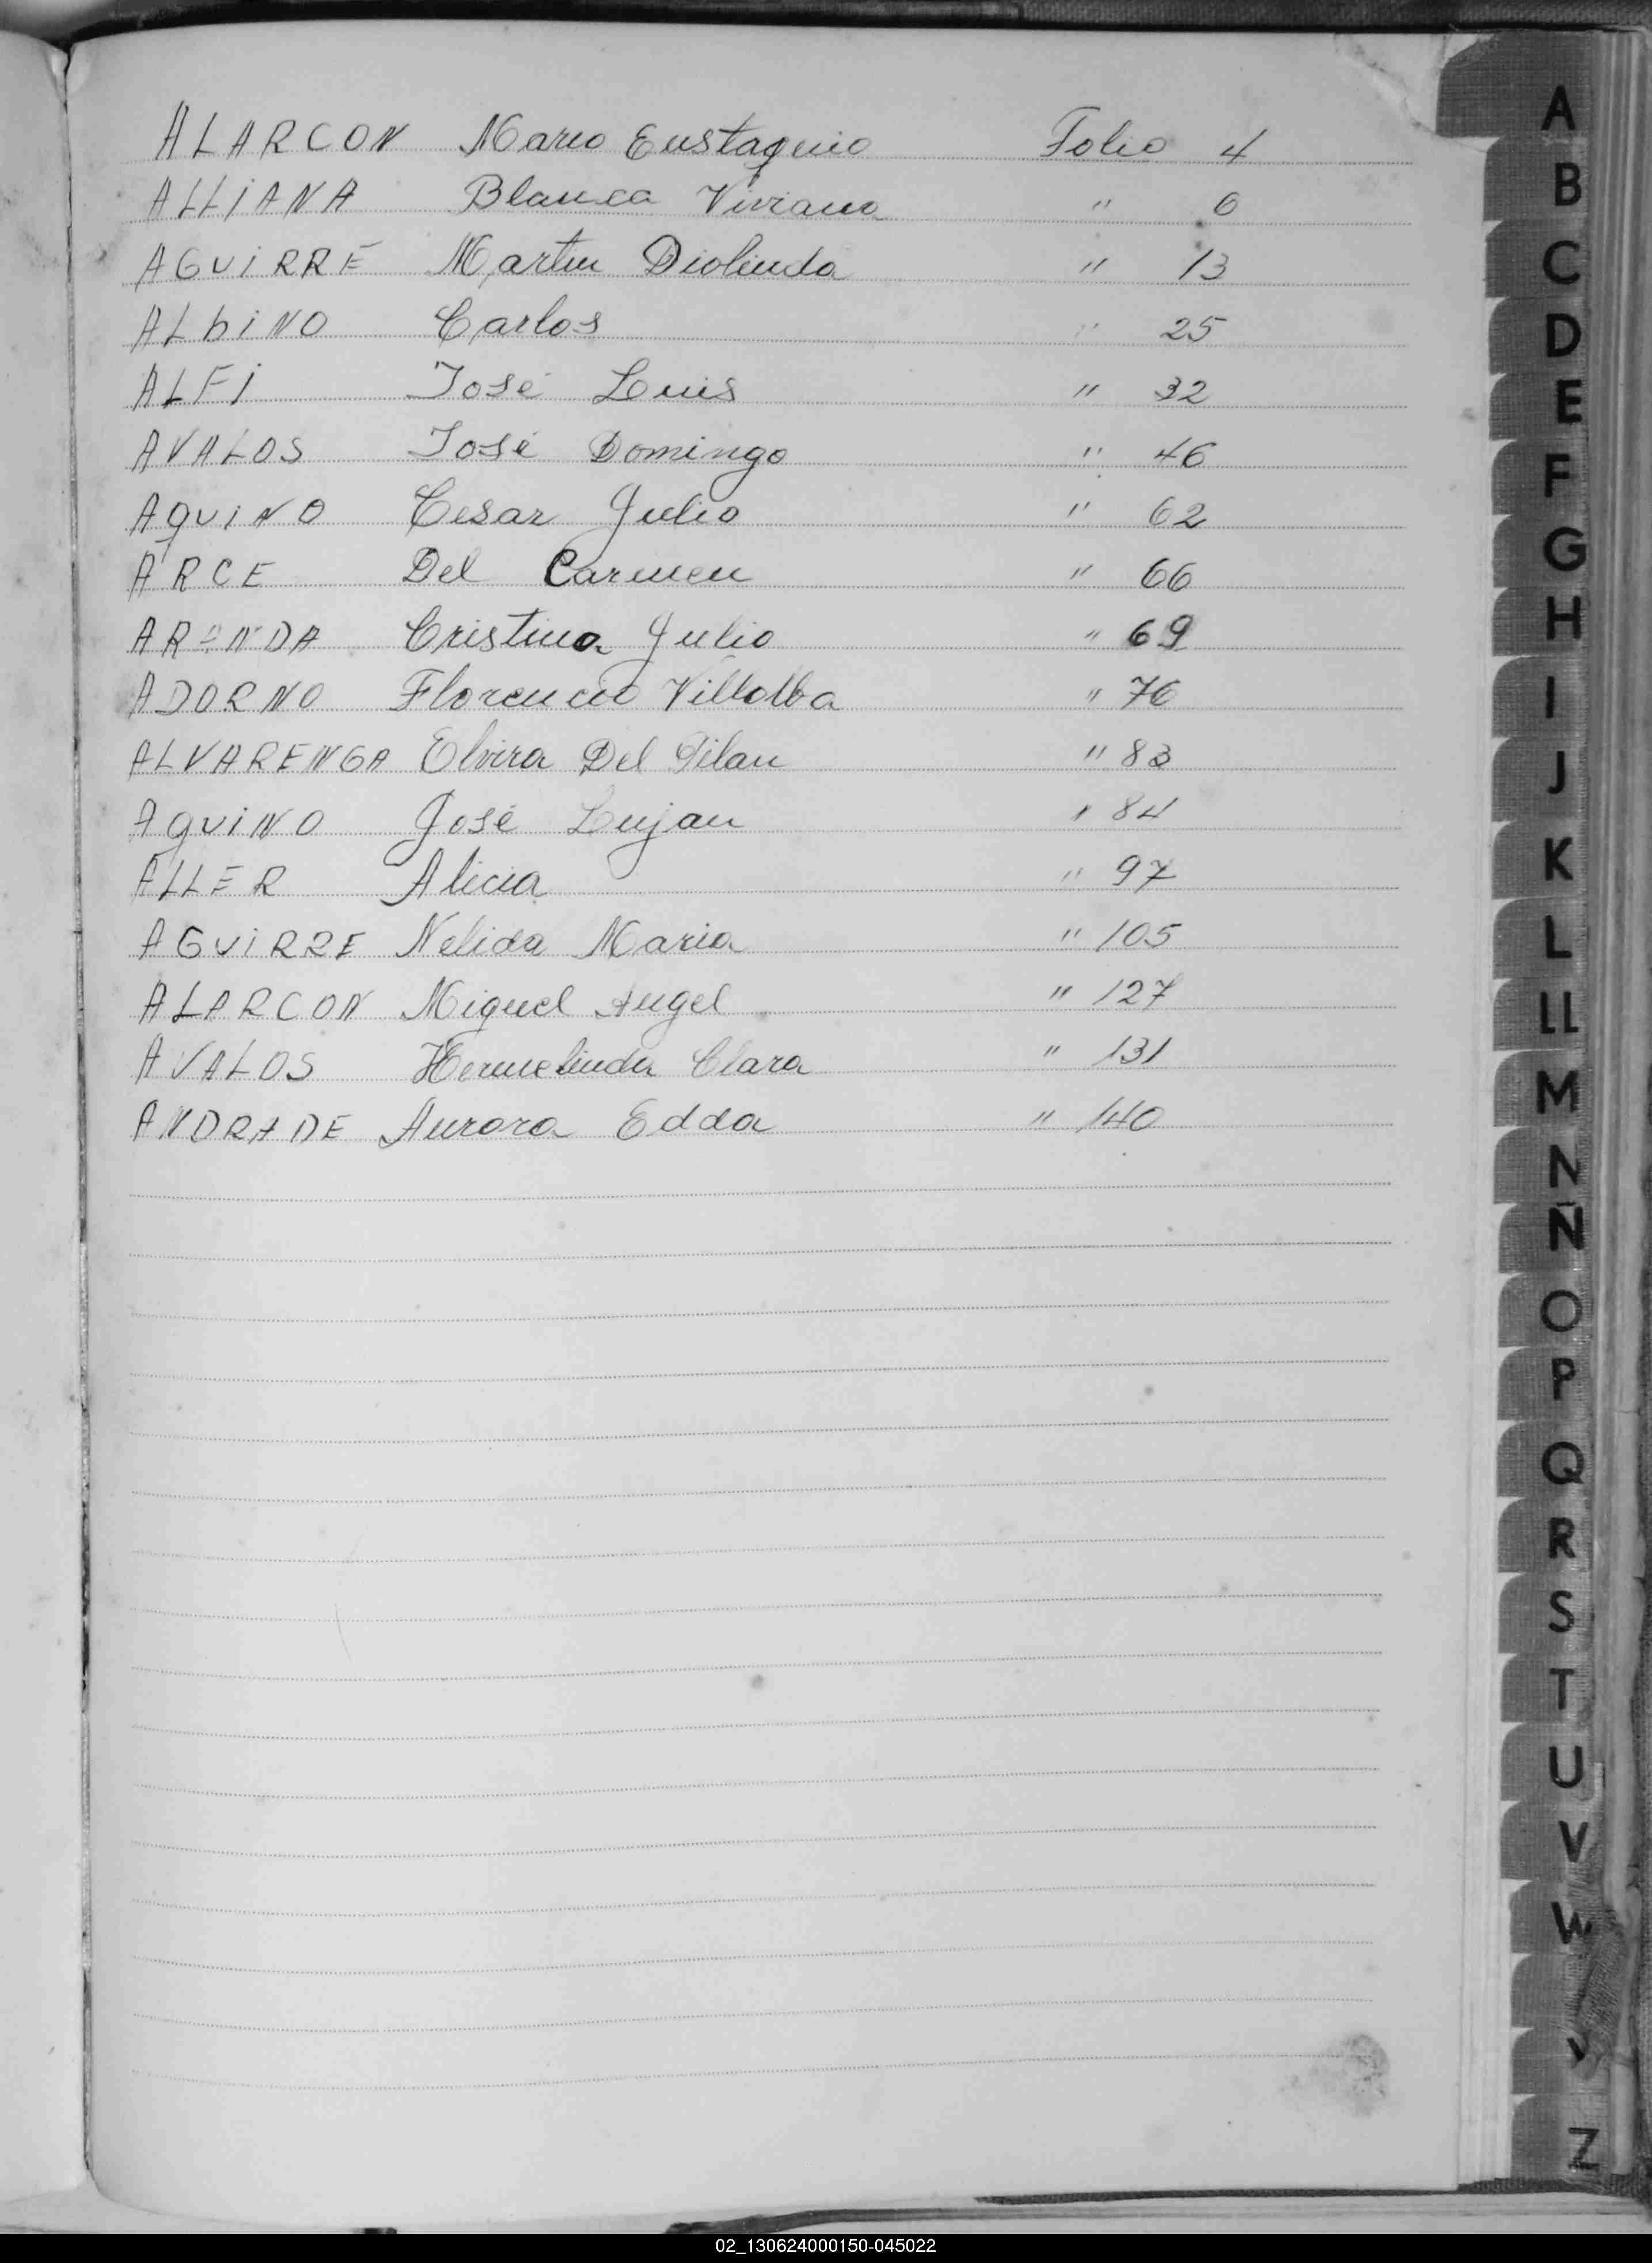 ALARCON Mario Eustaquio Folio 4
ALLIANA Blanca Viviana " 6
AGUIRRE Martin Diolinda " 13
ALBINO Carlos " 25
ALFI José Luis " 32
AVALOS José Domingo " 46
AQUINO Cesar Julio " 62
ARCE Del Carmen " 66
ARANDA Cristina Julio " 69
ADORNO Florencio Villalba " 76
ALVARENGA Elvira Del Pilar " 83
AQUINO José Lujan " 84
ALLER Alicia " 97
AGUIRRE Nelida Maria " 105
ALARCON Miguel Angel " 127
AVALOS Hermelinda Clara " 131
ANDRADE Aurora Edda " 140
A
B
C
D
E
F
G
H
I
J
K
L
LL
M
N
Ñ
O
P
Q
R
S
T
U
V
W
Z
02_130624000150-045022